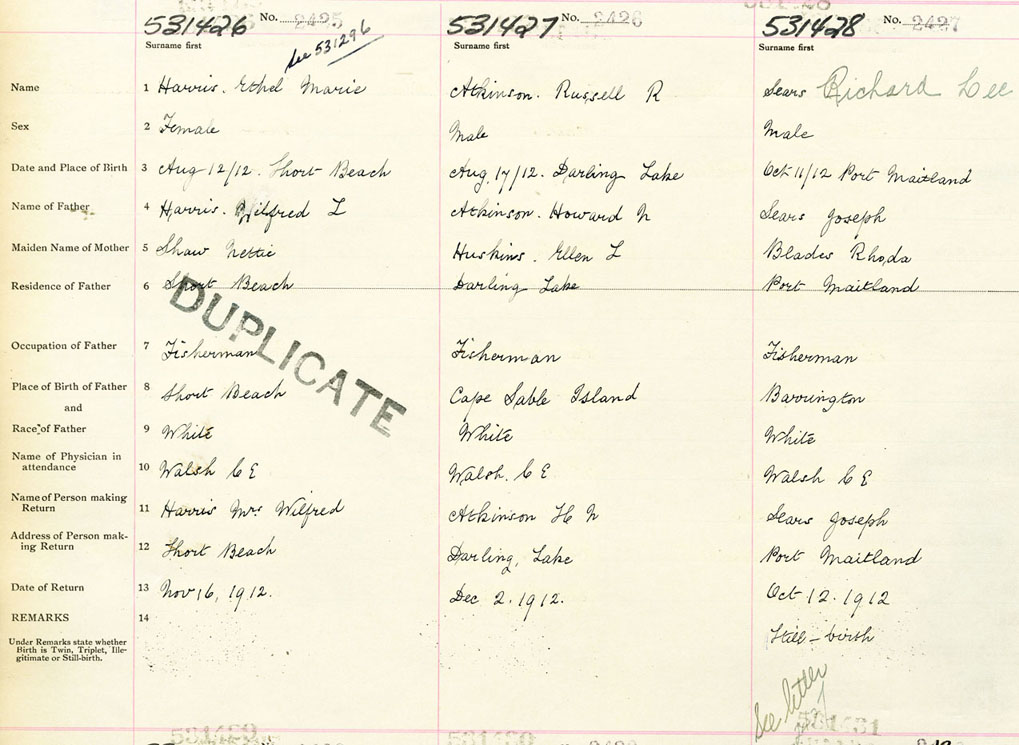 531426 No. 2425 531427 No. 2426 531428 No. 2427
Surname first Surname first Surname first
See 531296
Name 1 Harris. Ethel Marie Atkinson. Russell R Sears Richard Lee
Sex 2 Female Male Male
Date and Place of Birth 3 Aug 12/12. Short Beach Aug. 17/12. Darling Lake Oct 11/12 Port Maitland
Name of Father 4 Harris. Wilfred L Atkinson. Howard N Sears Joseph
Maiden Name of Mother 5 Shaw Nettie Huskins. Ellen L Blades Rhoda
Residence of Father 6 Short Beach Darling Lake Port Maitland
DUPLICATE
Occupation of Father 7 Fisherman Fisherman Fisherman
Place of Birth of Father 8 Short Beach Cape Sable Island Barrington
and
Race of Father 9 White White White
Name of Physician in
attendance 10 Walsh C E Walsh. C E Walsh C E
Name of Person making
Return 11 Harris Mrs Wilfred Atkinson H N Sears Joseph
Address of Person mak-
ing Return 12 Short Beach Darling, Lake Port Maitland
Date of Return 13 Nov 16, 1912. Dec 2. 1912. Oct 12. 1912
REMARKS 14 Still-birth
Under Remarks state whether
Birth is Twin, Triplet, Ille-
gitimate or Still-birth.
See letter
531429 531430 531431